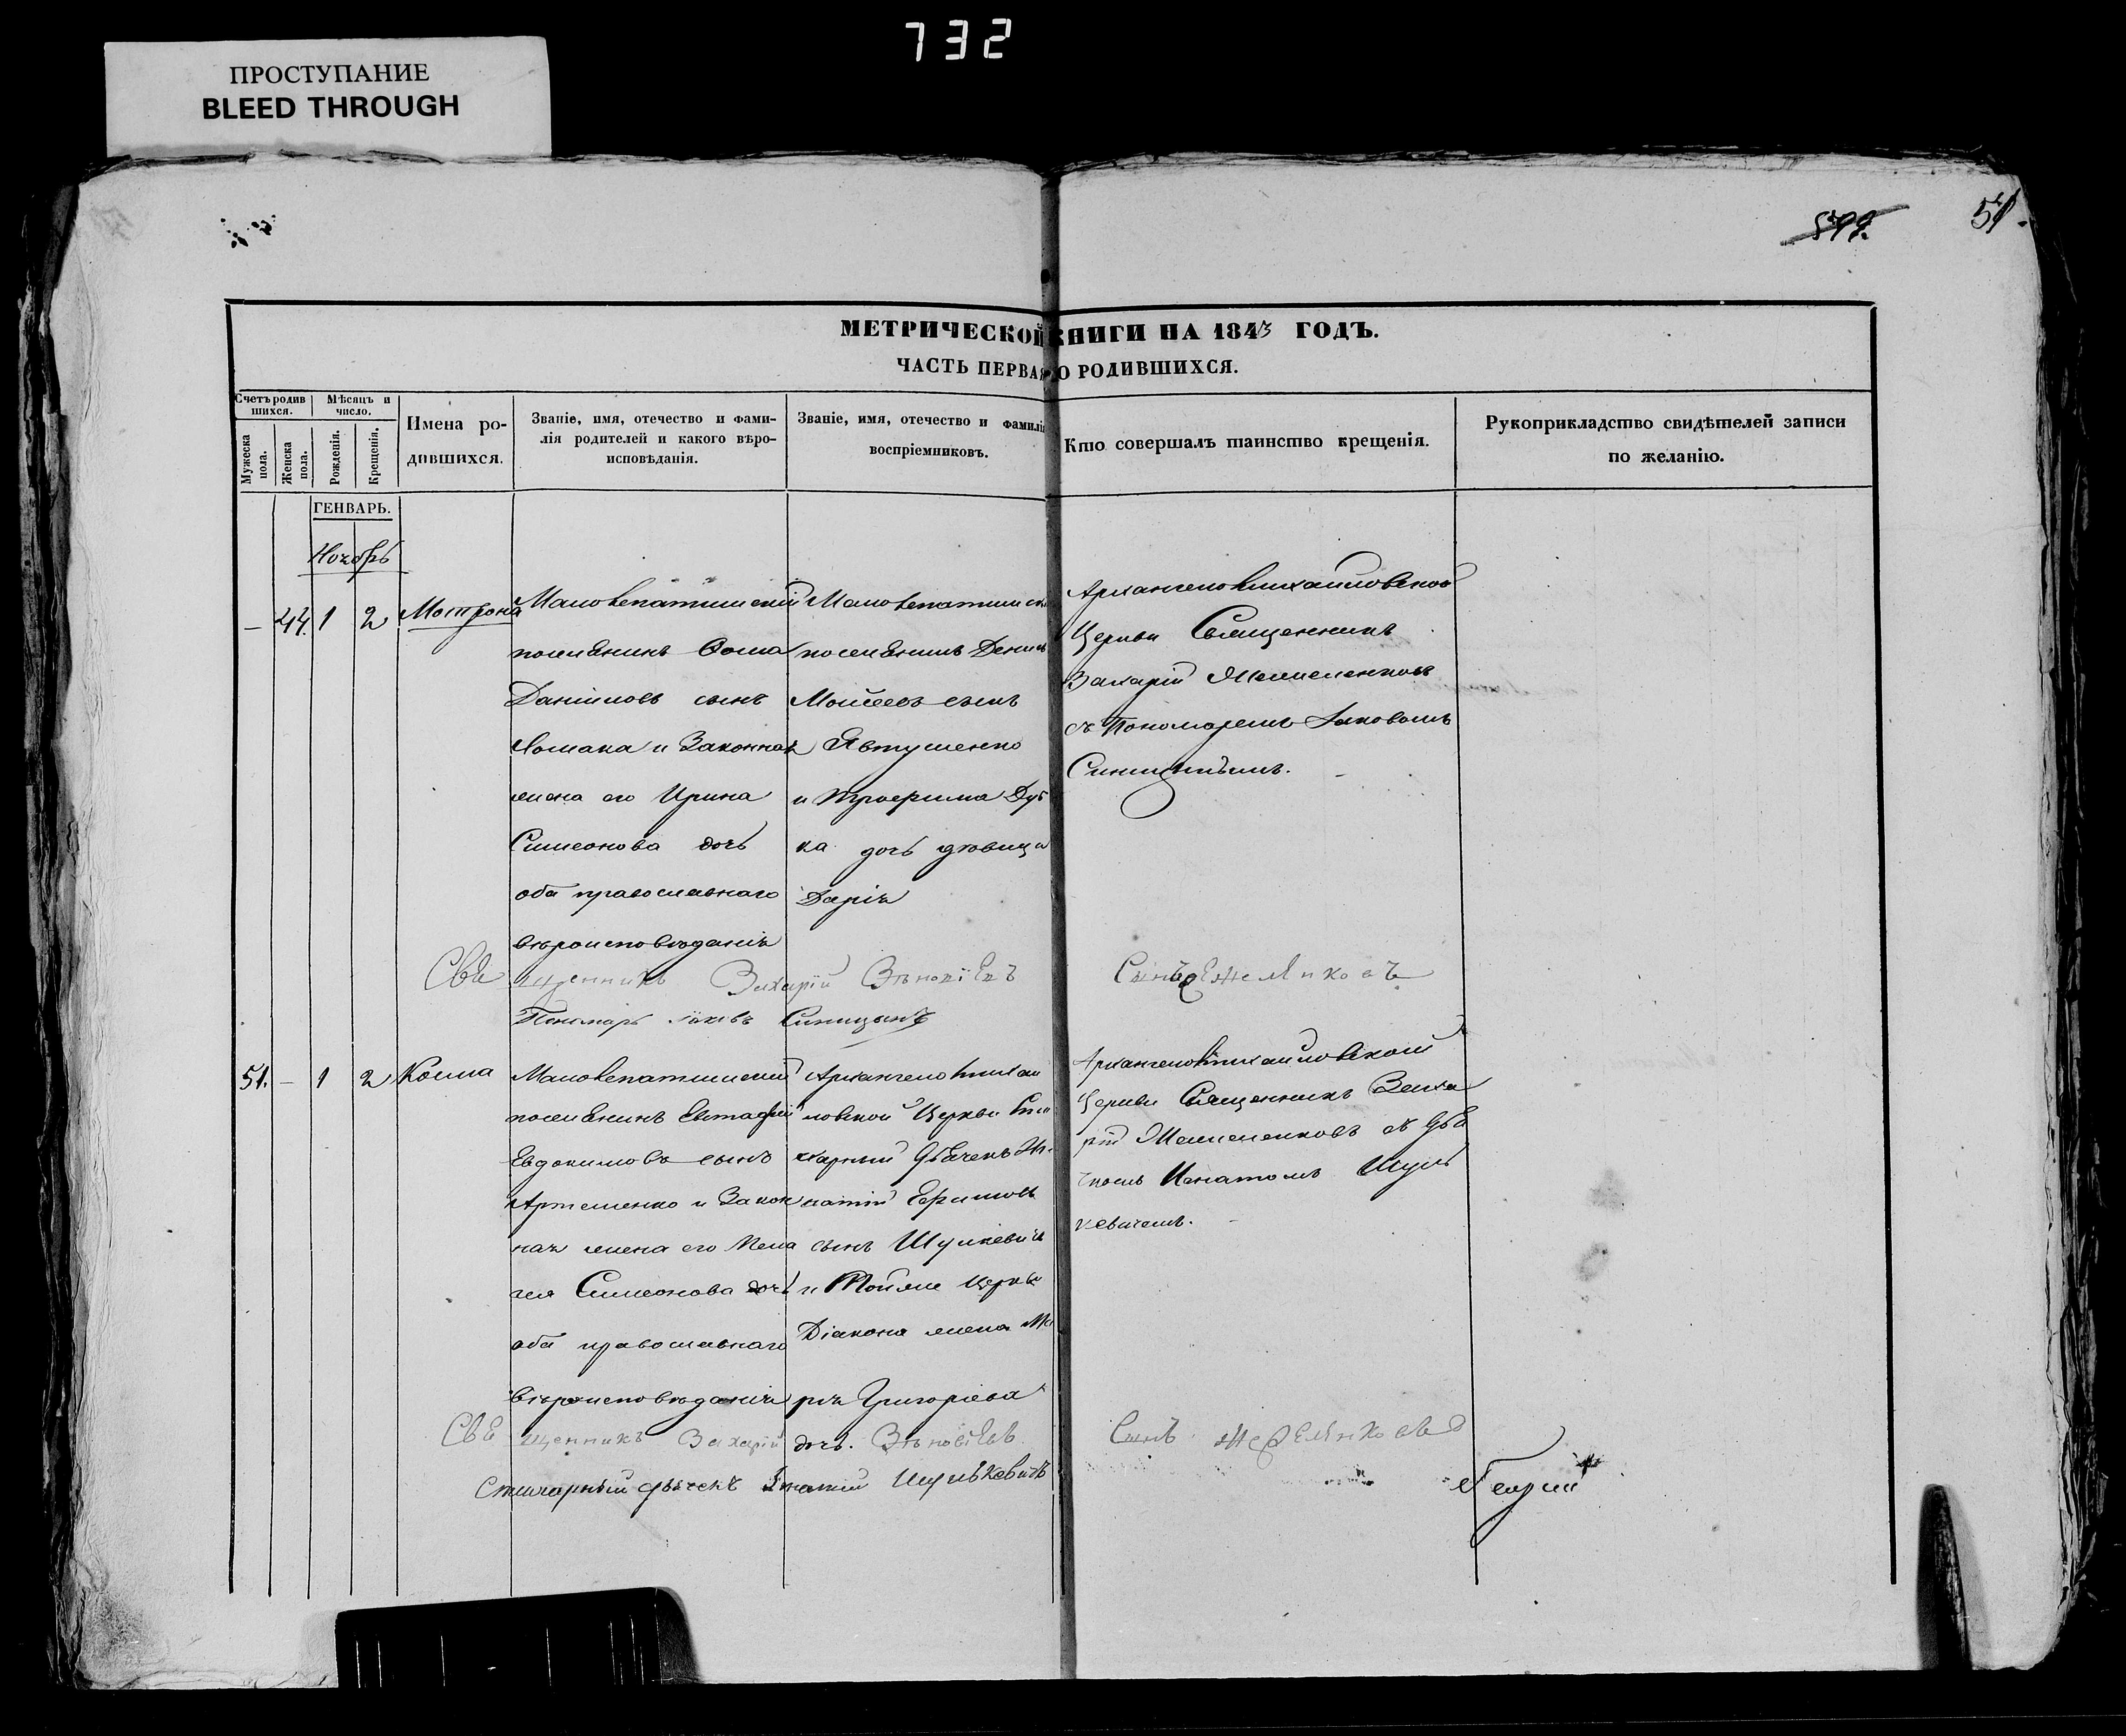 732
ПРОСТУПАНИЕ
BLEED THROUGH
599.
51.
МЕТРИЧЕСКОЙ КНИГИ НА 1843 ГОДЪ.
ЧАСТЬ ПЕРВАЯ О РОДИВШИХСЯ.
Счетъ родив
шихся.
Мужеска
пола.
Женска
пола.
Мѣсяцъ и
число.
Рожденія.
Крещенія.
Имена ро-
дившихся.
Званіе, имя, отечество и фами-
лія родителей и какого вѣро-
исповѣданія.
Званіе, имя, отечество и фамилія
воспріемниковъ.
Кто совершалъ таинство крещенія.
Рукоприкладство свидѣтелей записи
по желанію.
ГЕНВАРЬ.
Ноябрь
– 44. 1 2 Мотрона
поселянинъ Ѳома
Даніиловъ сынъ
и Законная
жена его Ирина
Симеонова дочь
оба православнаго
вѣроисповѣданія
поселянинъ Денисъ
Моисеевъ сынъ
Явтушенко
и Трофима Дуб
ка дочь дѣвица
Дарія
Архангеломихаиловской
Церкви Священникъ
Захарій
съ Пономаремъ Іаковомъ
Синицынымъ.
Священникъ Захарій Зѣновіевъ
Пономарь Іаковъ Синицынъ
51. – 1 2 Косма
поселянинъ Евстафій
Евдокимовъ сынъ
Артеменко и Закон
ная жена его Пела
гея Симеонова дочь
оба православнаго
вѣроисповѣданія
Архангеломихаи
ловской Церкви Сти
харный Дьячекъ Иг
натій Ефимовъ
сынъ Шулкевичъ
и Тойже Церкви
Діакона жена Ма
рія Григоріева
дочь.
Архангеломихаиловской
Церкви Священникъ Заха
рій съ Дья
чкомъ Игнатомъ Шуль
кевичемъ.
Священникъ Захарій Зѣновіевъ
Стихарный дьячекъ Игнатій Шулькевичъ